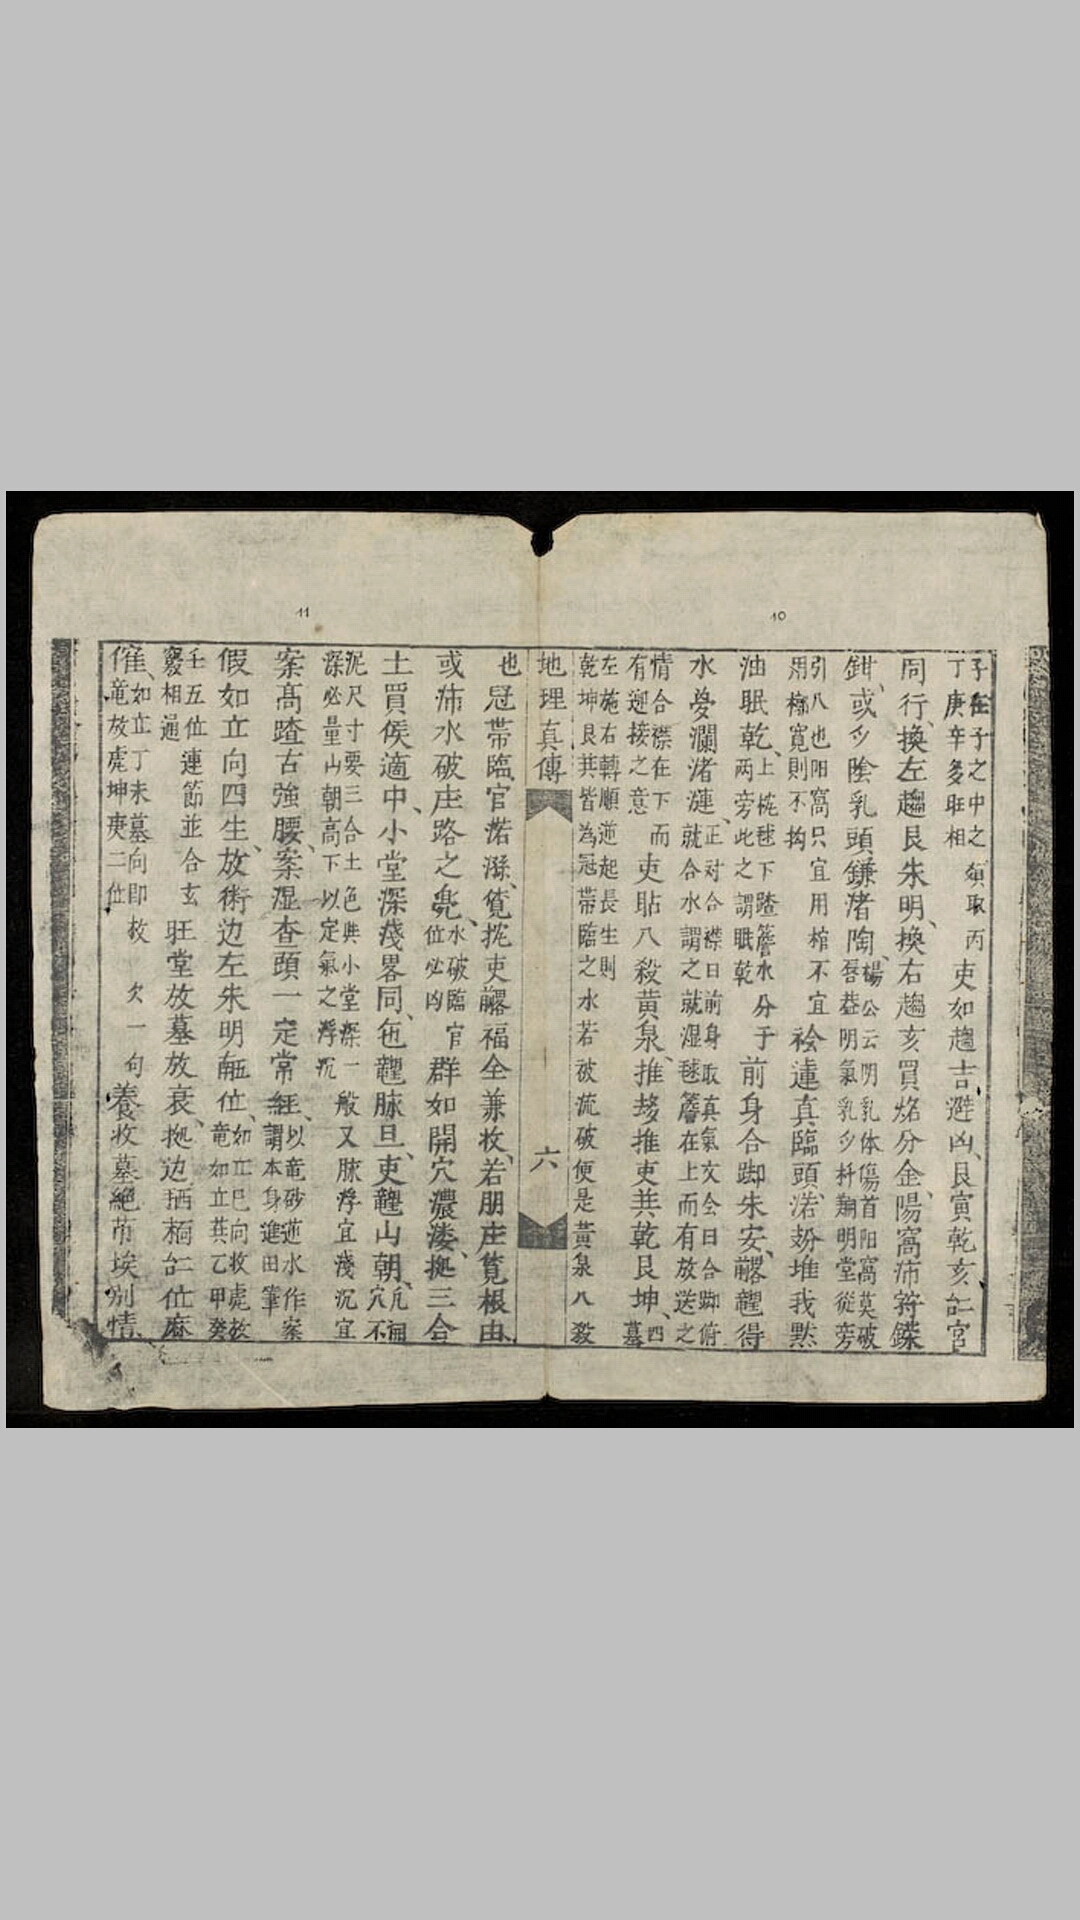 10
子在子之中之須取丙
丁庚辛多旺相
吏如趨吉避凶艮寅乾亥㐌宮
同行換左趨艮朱明換右趨亥買烙分金陽窩沛符鏶
鉗或多陰乳頭鎌渚陶
楊公云明乳体傷首阳窩莫破
吾益明氣乳多杆翔明堂從旁
引八也阳窩只宜用棺不宜
用槨寬則不拘
裣蓮真臨頭渃㘨堆我黙
油眠乾
上梳毬下蹅簷水分于
两旁此之謂眠乾
前身合脚朱安𨅸龍得
水㝱瀾渚漣
正对合襟曰前身取真氣文会曰合脚俯
就合水謂之就湿毬簷在上而有放送之
情合襟在下而
有迎接之意
吏貼八殺黄泉推㘨推吏共乾艮坤
四墓
左施右轉順逆起長生則
乾坤艮共皆為冠帶臨之水若破流破便是黄泉八殺
地理真傳
六
11
也
冠帶臨官渃溺筧挓吏𨅸福全兼收若朋庄筧根由
或沛水破庄路之堯
水破臨官
位必凶
群如開穴濃淒拠三合
土買侯適中小堂深淺畧同㐌龍脉旦吏龍山朝
凡開穴不
泥尺寸要三合土色典小堂深一般又脉浮宜淺沉宜
深必量山朝高下以定氣之浮沉
案高蹅古強腰案湿查頭一定常経
以竜砂逆水作案
謂本身進田筆
假如立向四生放術边左朱明𦊚位
如立巳向收處放
竜如立共乙甲癸
壬五位連節並合玄
竅相通
旺堂放墓放衰拠边𢪀𣘃㐌位麻
催
如立丁未墓向即救欠一句
竜放虎坤庚二位
養收墓絕𠂇埃別情